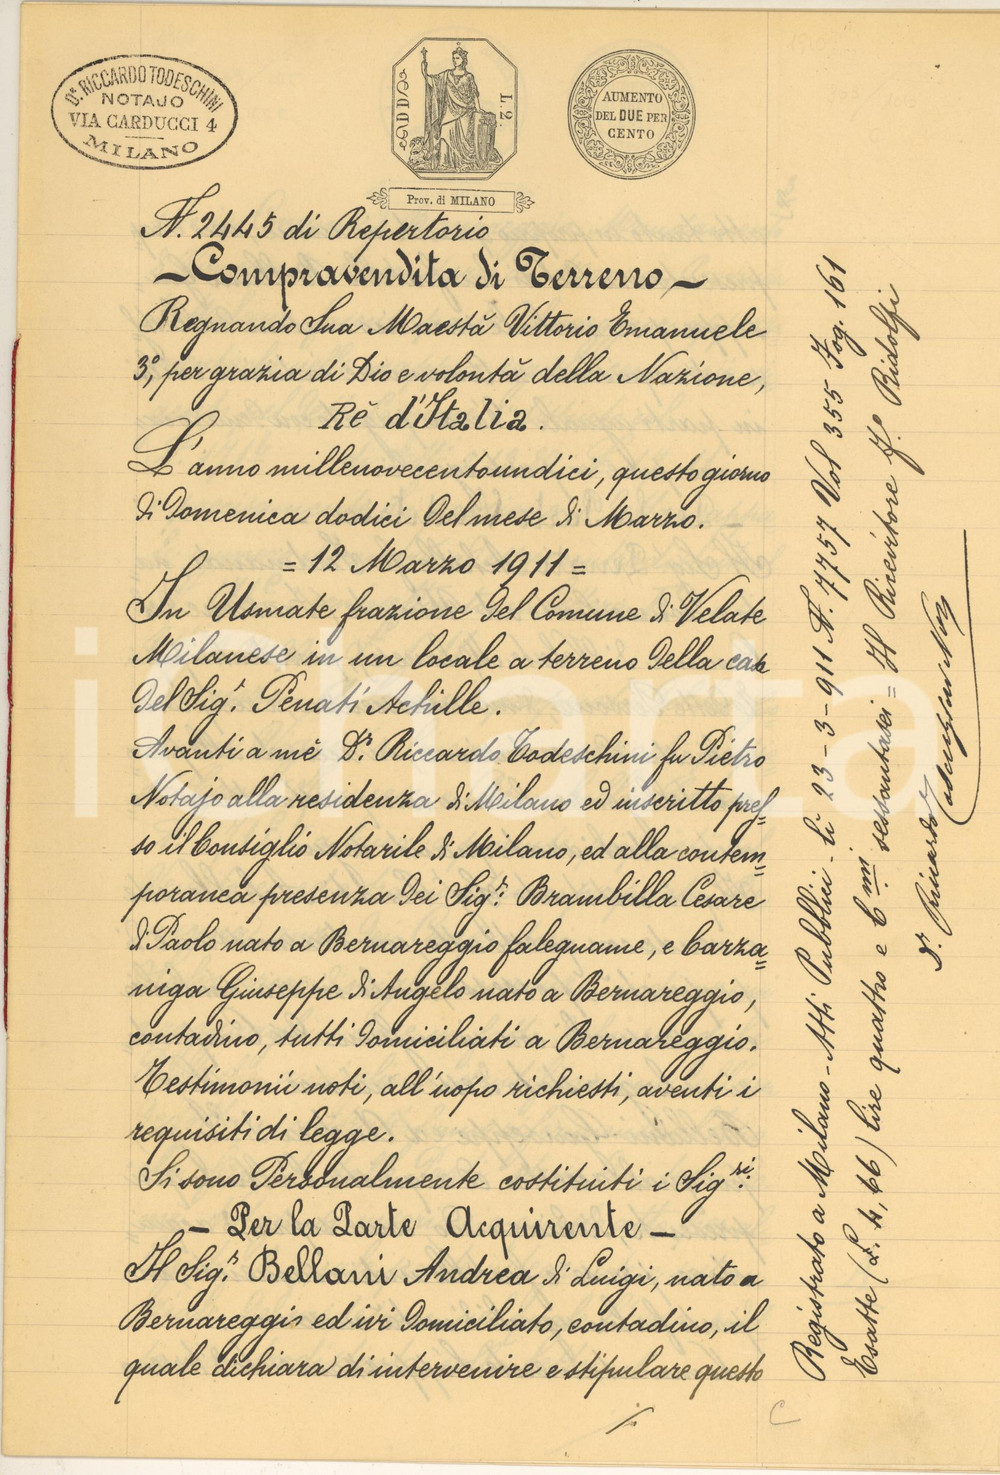 Dr. RICCARDO TODESCHINI
NOTAJO
VIA CARDUCCI 4
MILANO
L. 2.
AUMENTO
DEL DUE PER
CENTO
Prov. di MILANO
N. 2445 di Repertorio
— Compravendita di Terreno —
Regnando Sua Maestà Vittorio Emanuele
3°, per grazia di Dio e volontà della Nazione,
Rè d'Italia.
L'anno millenovecentoundici, questo giorno
di Domenica dodici del mese di Marzo.
= 12 Marzo 1911 =
In Usmate frazione del Comune di Velate
Milanese in un locale a terreno della casa
del Sigr. Penati Achille.
Avanti a mè Dr. Riccardo Todeschini fu Pietro
Notajo alla residenza di Milano ed inscritto pres=
so il Consiglio Notarile di Milano, ed alla contem=
poranea presenza dei Sigri: Brambilla Cesare
di Paolo nato a Bernareggio falegname, e Carza=
niga Giuseppe di Angelo nato a Bernareggio,
contadino, tutti domiciliati a Bernareggio.
Testimonii noti, all'uopo richiesti, aventi i
requisiti di legge.
Si sono Personalmente costituiti i Sigri:
— Per la Parte Acquirente —
Il Sigr. Bellani Andrea di Luigi, nato a
Bernareggio ed ivi domiciliato, contadino, il
quale dichiara di intervenire e stipulare questo
Registrato a Milano - Atti Pubblici - li 23-3-911 N. 7757 Vol 355 Fog. 161
Esatte (L. 4,66) lire quattro e Cmi sessantasei = Il Ricevitore Fo Ridolfi
Dr. Riccardo Todeschini Not